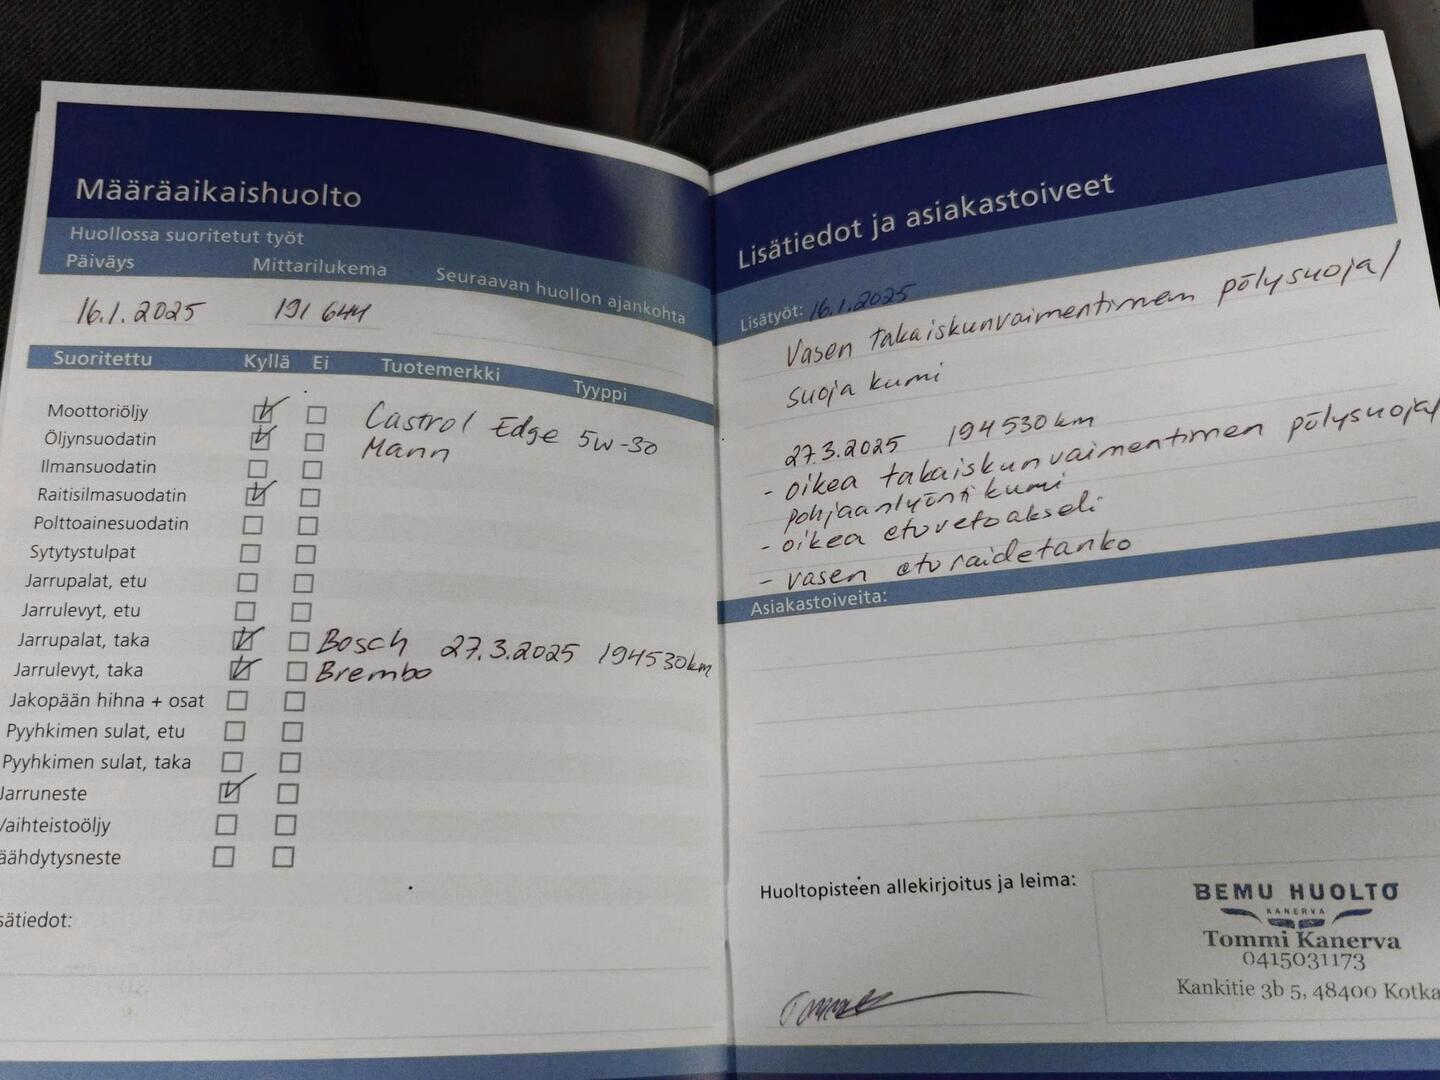 Määräaikaishuolto
Huollossa suoritetut työt
Päiväys Mittarilukema Seuraavan huollon ajankohta
16.1.2025 191 644
Suoritettu Kyllä Ei Tuotemerkki Tyyppi
Moottoriöljy Castrol Edge 5w-30
Öljynsuodatin Mann
Ilmansuodatin
Raitisilmasuodatin
Polttoainesuodatin
Sytytystulpat
Jarrupalat, etu
Jarrulevyt, etu
Jarrupalat, taka Bosch 27.3.2025 194530km
Jarrulevyt, taka Brembo
Jakopään hihna + osat
Pyyhkimen sulat, etu
Pyyhkimen sulat, taka
Jarruneste
Vaihteistoöljy
äähdytysneste
sätiedot:
Lisätiedot ja asiakastoiveet
Lisätyöt: 16.1.2025
Vasen takaiskunvaimentimen pölysuoja/
suoja kumi
27.3.2025 194530km
- oikea takaiskunvaimentimen pölysuoja/
pohjaanlyönti kumi
- oikea etuvetoakseli
- vasen etu raidetanko
Asiakastoiveita:
Huoltopisteen allekirjoitus ja leima:
BEMU HUOLTO
KANERVA
Tommi Kanerva
0415031173
Kankitie 3b 5, 48400 Kotka